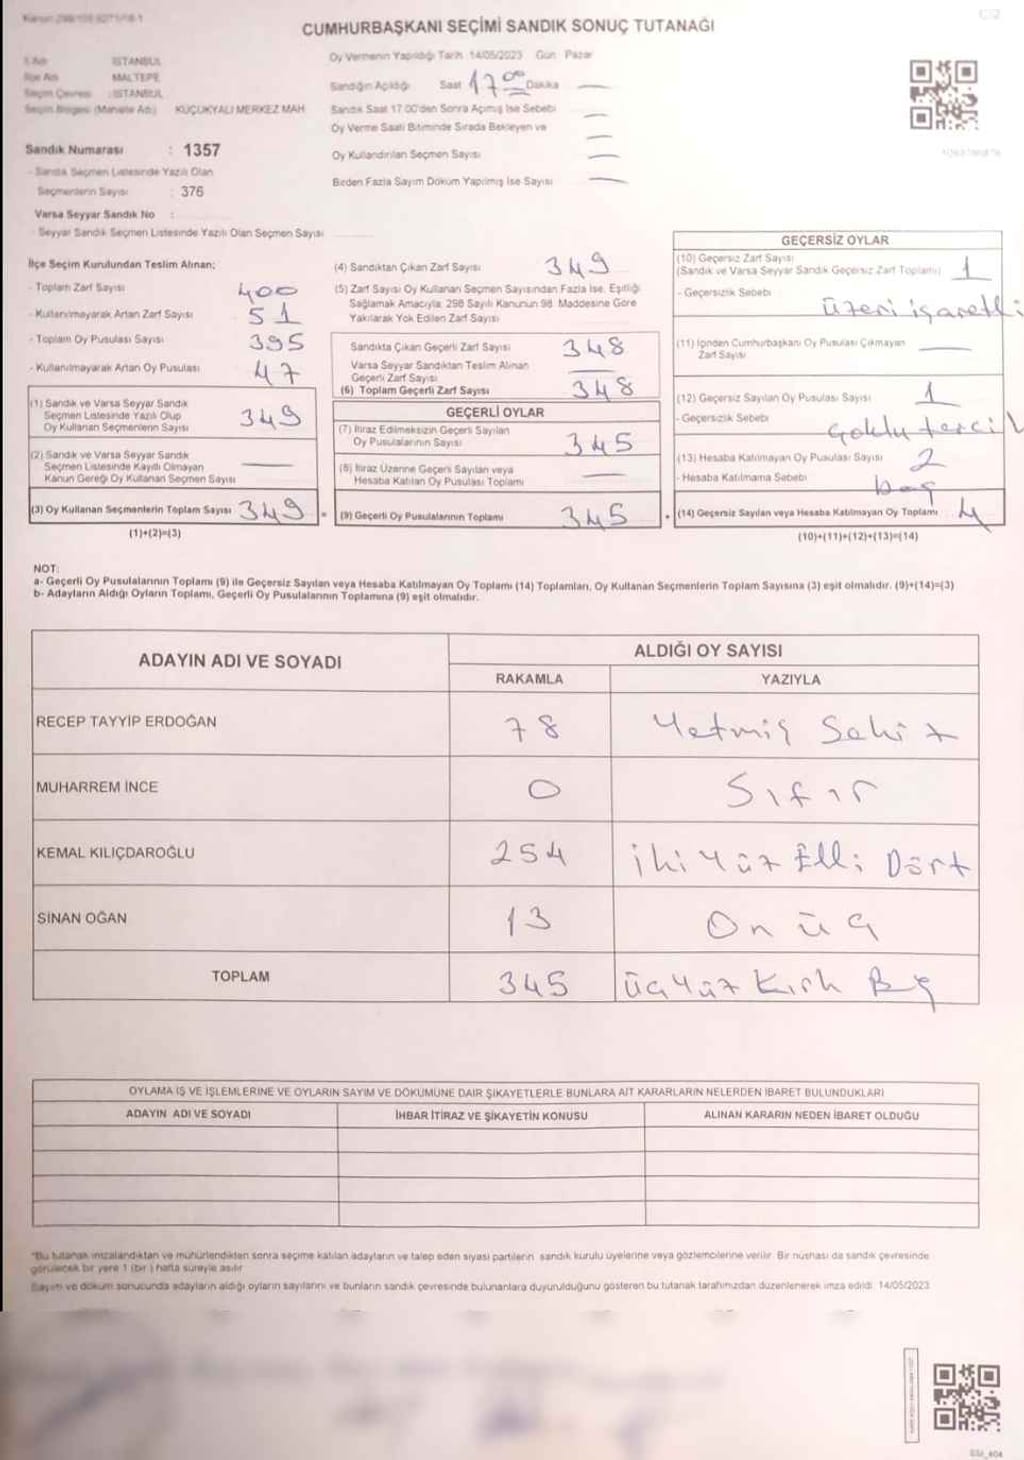 CUMHURBAŞKANI SEÇİMİ SANDIK SONUÇ TUTANAĞI
İSTANBUL
MALTEPE
İSTANBUL
KÜÇÜKYALI MERKEZ MAH
Sandık Numarası : 1357
- Sandık Seçmen Listesinde Yazılı Olan
Seçmenlerin Sayısı : 376
Varsa Seyyar Sandık No :
- Seyyar Sandık Seçmen Listesinde Yazılı Olan Seçmen Sayısı
Oy Vermenin Yapıldığı Tarih 14/05/2023 Gün Pazar
Sandığın Açıldığı Saat 17 00 Dakika
Sandık Saat 17.00'den Sonra Açımış İse Sebebi
Oy Verme Saati Bitiminde Sırada Bekleyen ve
Oy Kullandırılan Seçmen Sayısı
Birden Fazla Sayım Döküm Yapılmış İse Sayısı
İlçe Seçim Kurulundan Teslim Alınan;
- Toplam Zarf Sayısı 400
- Kullanılmayarak Artan Zarf Sayısı 51
- Toplam Oy Pusulası Sayısı 395
- Kullanılmayarak Artan Oy Pusulası 47
(1) Sandık ve Varsa Seyyar Sandık
Seçmen Listesinde Yazılı Olup
Oy Kullanan Seçmenlerin Sayısı 349
(2) Sandık ve Varsa Seyyar Sandık
Seçmen Listesinde Kayıtlı Olmayan
Kanun Gereği Oy Kullanan Seçmen Sayısı
(3) Oy Kullanan Seçmenlerin Toplam Sayısı 349 =
(1)+(2)=(3)
(4) Sandıktan Çıkan Zarf Sayısı 349
(5) Zarf Sayısı Oy Kullanan Seçmen Sayısından Fazla İse, Eşitliği
Sağlamak Amacıyla, 298 Sayılı Kanunun 98. Maddesine Göre
Yakılarak Yok Edilen Zarf Sayısı
Sandıkta Çıkan Geçerli Zarf Sayısı 348
Varsa Seyyar Sandıktan Teslim Alınan
Geçerli Zarf Sayısı
(6) Toplam Geçerli Zarf Sayısı 348
GEÇERLİ OYLAR
(7) İtiraz Edilmeksizin Geçerli Sayılan
Oy Pusulalarının Sayısı 345
(8) İtiraz Üzerine Geçerli Sayılan veya
Hesaba Katılan Oy Pusulası Toplamı
(9) Geçerli Oy Pusulalarının Toplamı 345 +
GEÇERSİZ OYLAR
(10) Geçersiz Zarf Sayısı
(Sandık ve Varsa Seyyar Sandık Geçersiz Zarf Toplamı) 1
- Geçersizlik Sebebi
üzeri işaretli
(11) İçinden Cumhurbaşkanı Oy Pusulası Çıkmayan
Zarf Sayısı
(12) Geçersiz Sayılan Oy Pusulası Sayısı 1
- Geçersizlik Sebebi
çoklu tercih
(13) Hesaba Katılmayan Oy Pusulası Sayısı 2
- Hesaba Katılmama Sebebi
boş
(14) Geçersiz Sayılan veya Hesaba Katılmayan Oy Toplamı 4
(10)+(11)+(12)+(13)=(14)
NOT:
a- Geçerli Oy Pusulalarının Toplamı (9) ile Geçersiz Sayılan veya Hesaba Katılmayan Oy Toplamı (14) Toplamları, Oy Kullanan Seçmenlerin Toplam Sayısına (3) eşit olmalıdır. (9)+(14)=(3)
b- Adayların Aldığı Oyların Toplamı, Geçerli Oy Pusulalarının Toplamına (9) eşit olmalıdır.
ADAYIN ADI VE SOYADI
ALDIĞI OY SAYISI
RAKAMLA YAZIYLA
RECEP TAYYİP ERDOĞAN 78 Yetmiş Sekiz
MUHARREM İNCE 0 Sıfır
KEMAL KILIÇDAROĞLU 254 iki Yüz Elli Dört
SİNAN OĞAN 13 On üç
TOPLAM 345 üçyüz Kırk Beş
OYLAMA İŞ VE İŞLEMLERİNE VE OYLARIN SAYIM VE DÖKÜMÜNE DAİR ŞİKAYETLERLE BUNLARA AİT KARARLARIN NELERDEN İBARET BULUNDUKLARI
ADAYIN ADI VE SOYADI İHBAR İTİRAZ VE ŞİKAYETİN KONUSU ALINAN KARARIN NEDEN İBARET OLDUĞU
*Bu tutanak imzalandıktan ve mühürlendikten sonra seçime katılan adayların ve talep eden siyasi partilerin sandık kurulu üyelerine veya gözlemcilerine verilir. Bir nüshası da sandık çevresinde
görülecek bir yere 1 (bir) hafta süreyle asılır
Sayım ve döküm sonucunda adayların aldığı oyların sayılarını ve bunların sandık çevresinde bulunanlara duyurulduğunu gösteren bu tutanak tarafımızdan düzenlenerek imza edildi. 14/05/2023